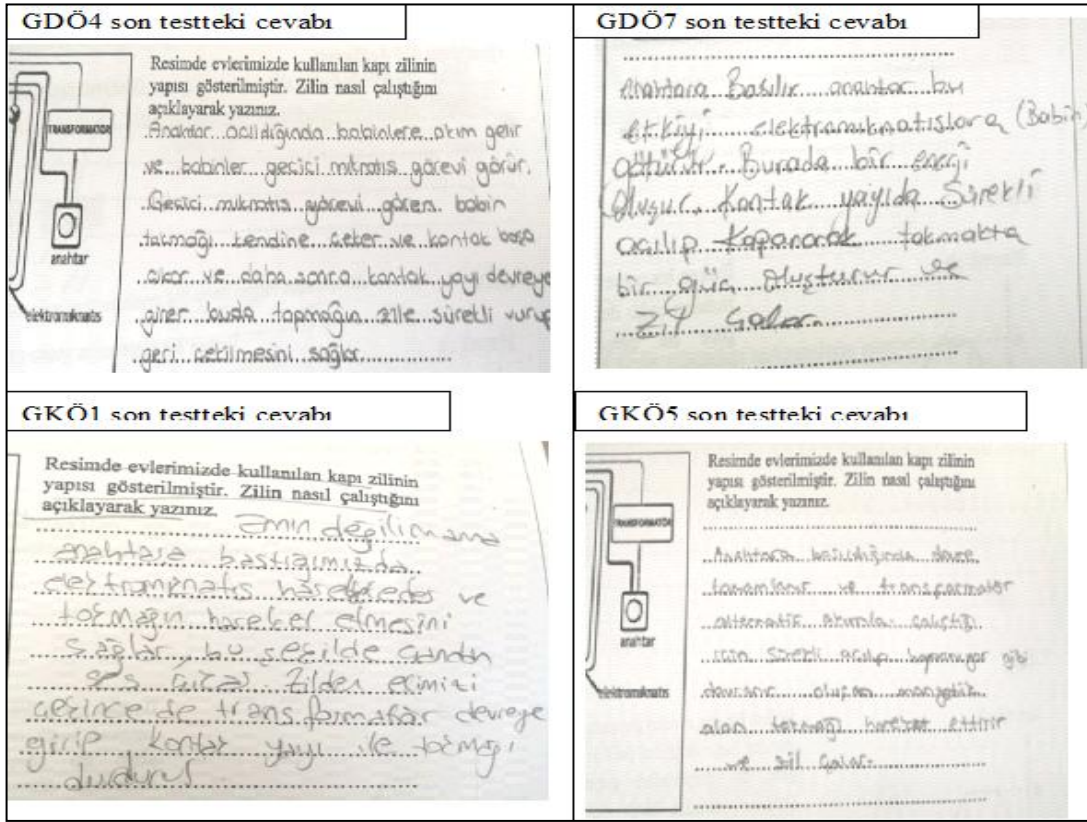 GDÖ4 son testteki cevabı
Resimde evlerimizde kullanılan kapı zilinin
yapısı gösterilmiştir. Zilin nasıl çalıştığını
açıklayarak yazınız.
Anahtar açıldığında bobinlere akım gelir
ve bobinler geçici mıknatıs görevi görür.
Geçici mıknatıs görevi gören bobin
tokmağı kendine çeker ve kontak boşa
çıkar ve daha sonra kontak yayı devreye
girer buda topmağın zille sürekli vurup
geri çekilmesini sağlar
TRANSFORMATÖR
anahtar
elektromıknatıs
GDÖ7 son testteki cevabı
Anahtara Basılır anahtar bu
etkiyi elektromıknatıslara (Babin)
götürür. Burada bir enerji
Oluşur. Kontak yayıda Sürekli
açılıp Kapanarak tokmakta
bir güç oluşturur ve
zil Çalar.
GKÖ1 son testteki cevabı
Resimde evlerimizde kullanılan kapı zilinin
yapısı gösterilmiştir. Zilin nasıl çalıştığını
açıklayarak yazınız.
Emin değilim ama
anahtara bastığımızda
elektromıknatıs hareket eder ve
tokmağın hareket etmesini
sağlar, bu şekilde
ses çıkar Zilden elimizi
çekince de transformatör devreye
girip kontak yayı ile tokmağı
durdurur
GKÖ5 son testteki cevabı
Resimde evlerimizde kullanılan kapı zilinin
yapısı gösterilmiştir. Zilin nasıl çalıştığını
açıklayarak yazınız.
Anahtara basıldığında devre
tamamlanır ve transformatör
alternatif akımla çalıştığı
için sürekli açılıp kapanıyor gibi
davranır oluşan manyetik
alan tokmağı hareket ettirir
ve zil çalar.
TRANSFORMATÖR
anahtar
elektromıknatıs